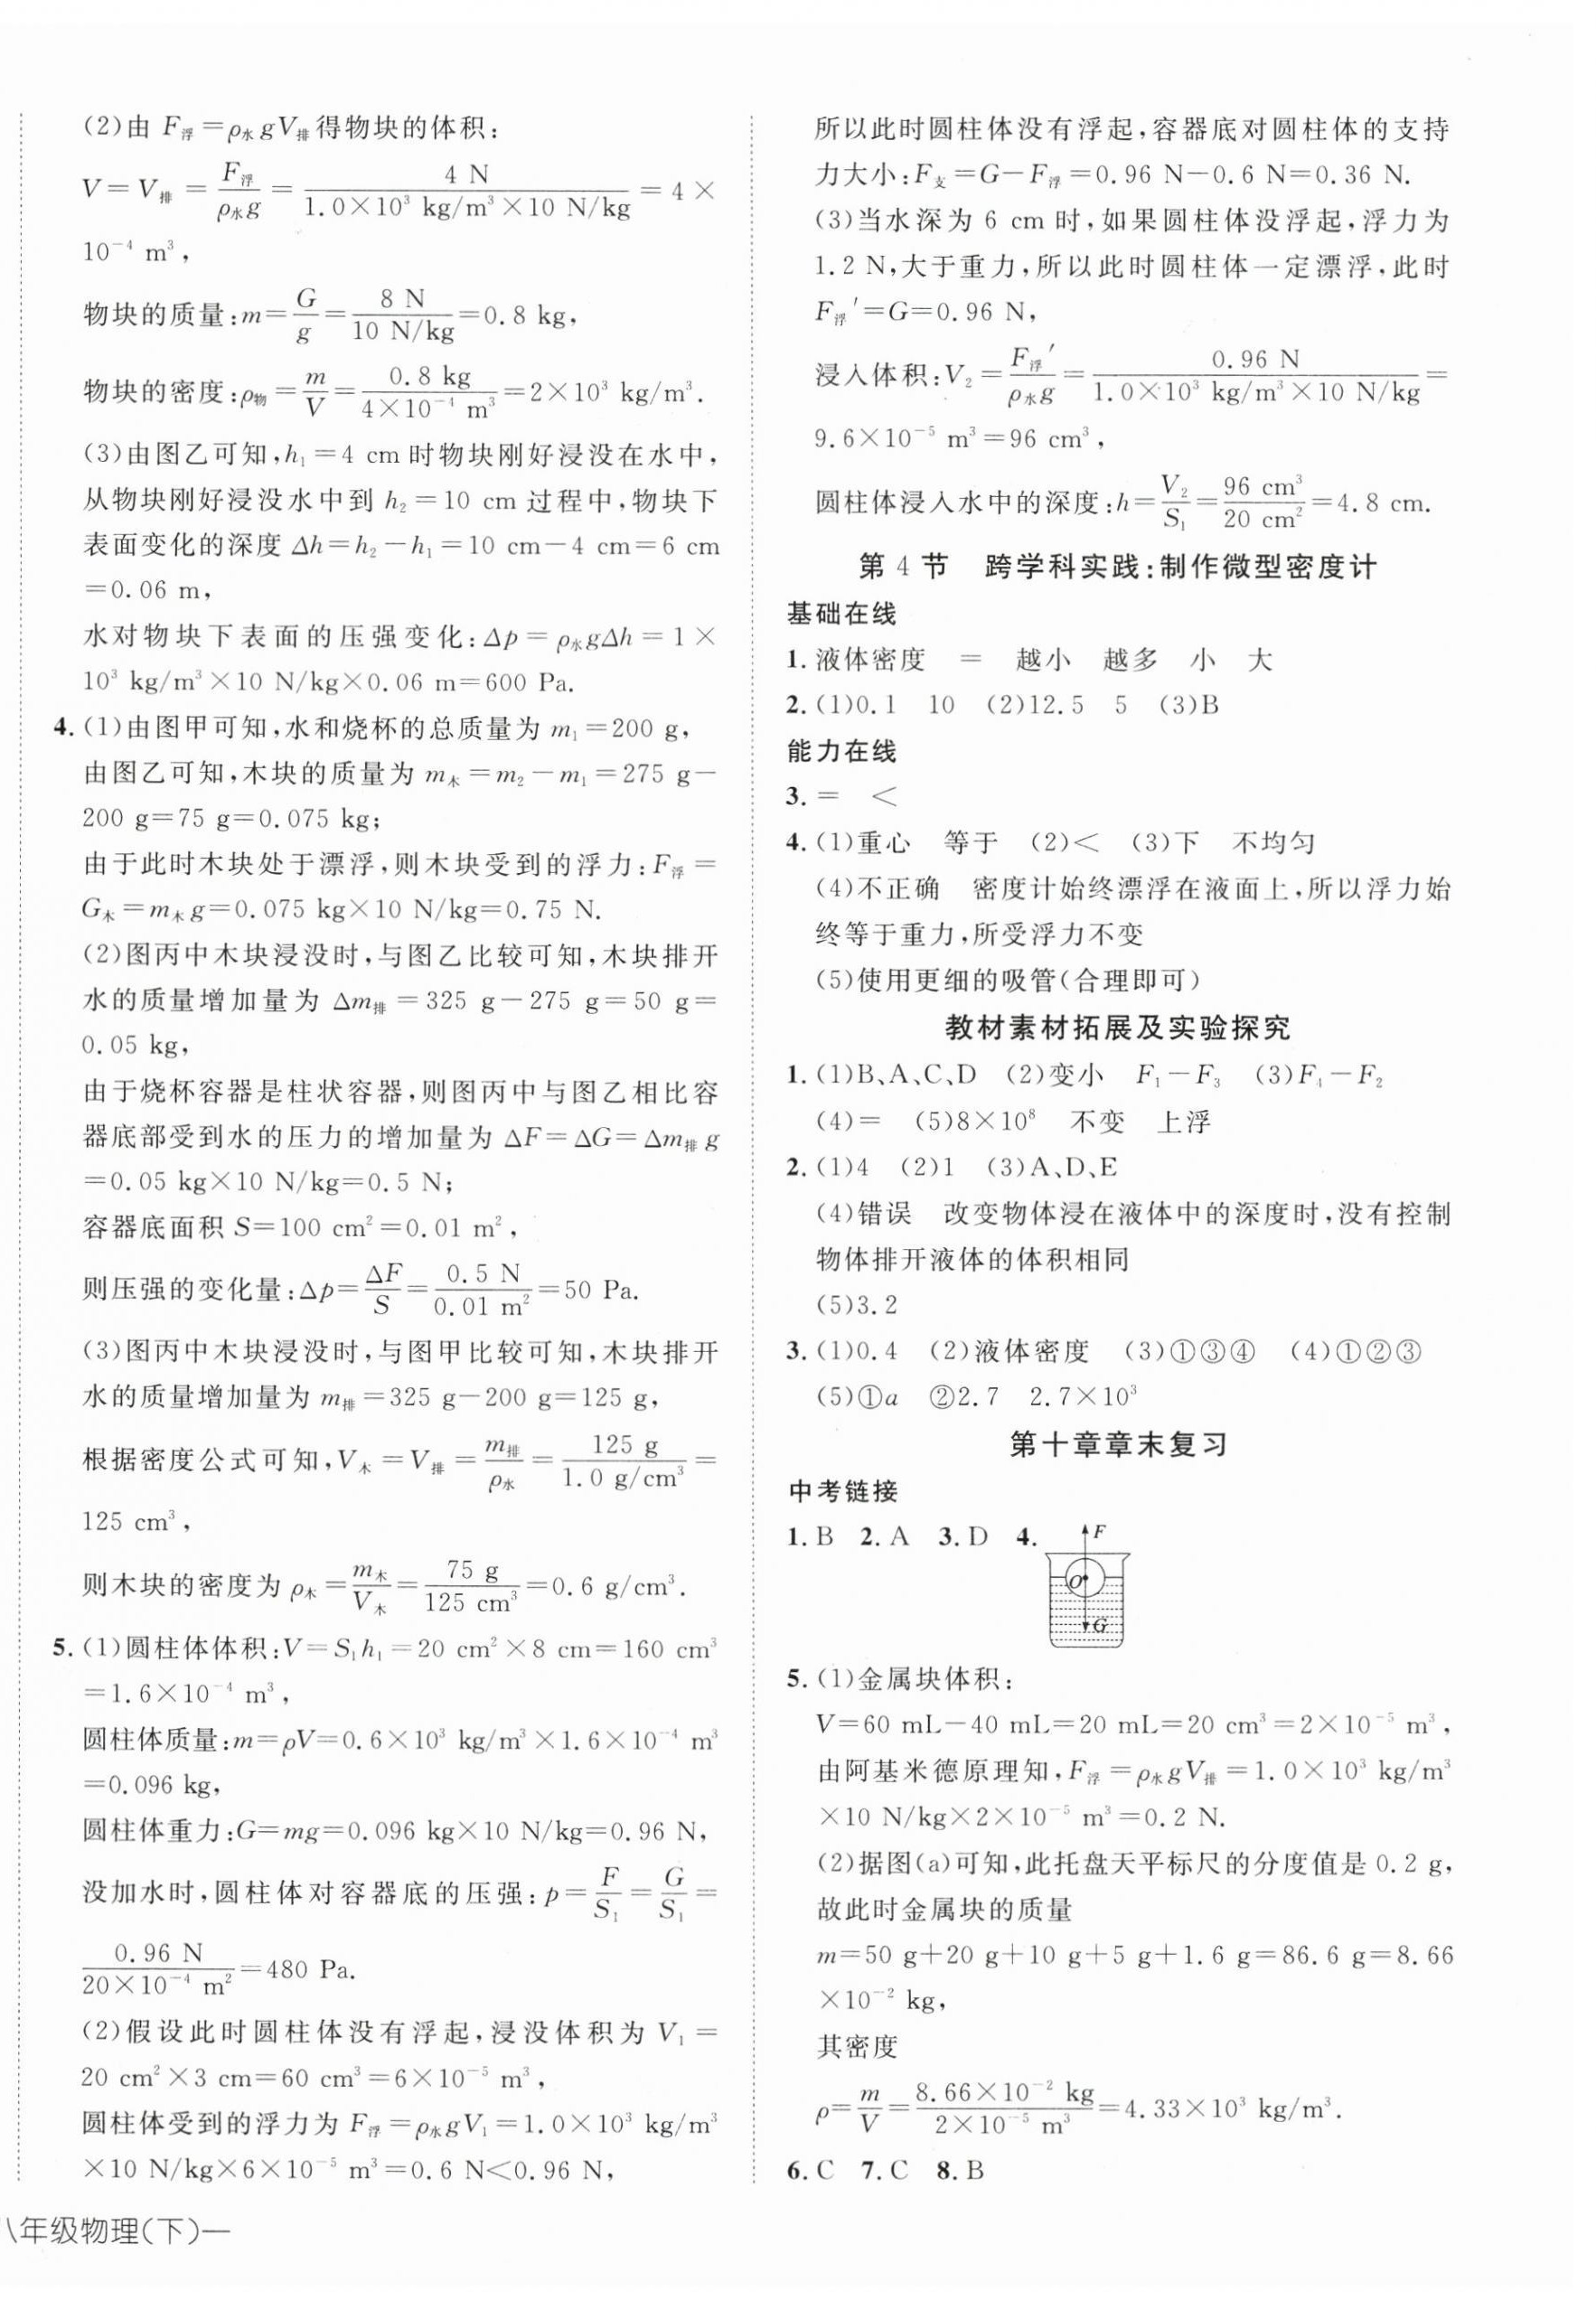 (2)由 F浮=ρ水gV排得物块的体积:
V=V排=F浮/ρ水g=4 N/1.0×10³ kg/m³×10 N/kg=4×
10⁻⁴ m³,
物块的质量:m=G/g=8 N/10 N/kg=0.8 kg,
物块的密度:ρ物=m/V=0.8 kg/4×10⁻⁴ m³=2×10³ kg/m³.
(3)由图乙可知,h₁=4 cm时物块刚好浸没在水中,
从物块刚好浸没水中到 h₂=10 cm 过程中,物块下
表面变化的深度 Δh=h₂-h₁=10 cm-4 cm=6 cm
=0.06 m,
水对物块下表面的压强变化:Δp=ρ水gΔh=1×
10³ kg/m³×10 N/kg×0.06 m=600 Pa.
4.(1)由图甲可知,水和烧杯的总质量为 m₁=200 g,
由图乙可知,木块的质量为 m木=m₂-m₁=275 g-
200 g=75 g=0.075 kg;
由于此时木块处于漂浮,则木块受到的浮力:F浮=
G木=m木g=0.075 kg×10 N/kg=0.75 N.
(2)图丙中木块浸没时,与图乙比较可知,木块排开
水的质量增加量为 Δm排=325 g-275 g=50 g=
0.05 kg,
由于烧杯容器是柱状容器,则图丙中与图乙相比容
器底部受到水的压力的增加量为 ΔF=ΔG=Δm排g
=0.05 kg×10 N/kg=0.5 N;
容器底面积 S=100 cm²=0.01 m²,
则压强的变化量:Δp=ΔF/S=0.5 N/0.01 m²=50 Pa.
(3)图丙中木块浸没时,与图甲比较可知,木块排开
水的质量增加量为 m排=325 g-200 g=125 g,
根据密度公式可知,V木=V排=m排/ρ水=125 g/1.0 g/cm³=
125 cm³,
则木块的密度为 ρ木=m木/V木=75 g/125 cm³=0.6 g/cm³.
5.(1)圆柱体体积:V=S₁h₁=20 cm²×8 cm=160 cm³
=1.6×10⁻⁴ m³,
圆柱体质量:m=ρV=0.6×10³ kg/m³×1.6×10⁻⁴ m³
=0.096 kg,
圆柱体重力:G=mg=0.096 kg×10 N/kg=0.96 N,
没加水时,圆柱体对容器底的压强:p=F/S₁=G/S₁=
0.96 N/20×10⁻⁴ m²=480 Pa.
(2)假设此时圆柱体没有浮起,浸没体积为 V₁=
20 cm²×3 cm=60 cm³=6×10⁻⁵ m³,
圆柱体受到的浮力为 F浮=ρ水gV₁=1.0×10³ kg/m³
×10 N/kg×6×10⁻⁵ m³=0.6 N<0.96 N,
八年级物理(下)—
所以此时圆柱体没有浮起,容器底对圆柱体的支持
力大小:F支=G-F浮=0.96 N-0.6 N=0.36 N.
(3)当水深为 6 cm 时,如果圆柱体没浮起,浮力为
1.2 N,大于重力,所以此时圆柱体一定漂浮,此时
F浮′=G=0.96 N,
浸入体积:V₂=F浮′/ρ水g=0.96 N/1.0×10³ kg/m³×10 N/kg=
9.6×10⁻⁵ m³=96 cm³,
圆柱体浸入水中的深度:h=V₂/S₁=96 cm³/20 cm²=4.8 cm.
第 4 节 跨学科实践:制作微型密度计
基础在线
1.液体密度 = 越小 越多 小 大
2.(1)0.1 10 (2)12.5 5 (3)B
能力在线
3.= <
4.(1)重心 等于 (2)< (3)下 不均匀
(4)不正确 密度计始终漂浮在液面上,所以浮力始
终等于重力,所受浮力不变
(5)使用更细的吸管(合理即可)
教材素材拓展及实验探究
1.(1)B、A、C、D (2)变小 F₁-F₃ (3)F₄-F₂
(4)= (5)8×10⁸ 不变 上浮
2.(1)4 (2)1 (3)A、D、E
(4)错误 改变物体浸在液体中的深度时,没有控制
物体排开液体的体积相同
(5)3.2
3.(1)0.4 (2)液体密度 (3)①③④ (4)①②③
(5)①a ②2.7 2.7×10³
第十章章末复习
中考链接
1.B 2.A 3.D 4.
F
O
G
5.(1)金属块体积:
V=60 mL-40 mL=20 mL=20 cm³=2×10⁻⁵ m³,
由阿基米德原理知,F浮=ρ水gV排=1.0×10³ kg/m³
×10 N/kg×2×10⁻⁵ m³=0.2 N.
(2)据图(a)可知,此托盘天平标尺的分度值是 0.2 g,
故此时金属块的质量
m=50 g+20 g+10 g+5 g+1.6 g=86.6 g=8.66
×10⁻² kg,
其密度
ρ=m/V=8.66×10⁻² kg/2×10⁻⁵ m³=4.33×10³ kg/m³.
6.C 7.C 8.B